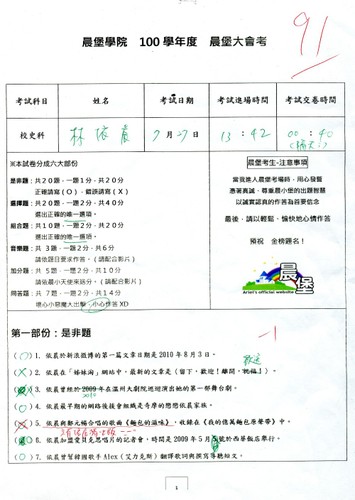 晨堡學院　100 學年度　晨堡大會考
91
考試科目　姓名　考試日期　考試進場時間　考試交卷時間
校史科　林依晨　13：42　00：40
※本試卷分成六大部份
是非題：共20題，一題1分，共20分
正確請寫(O)，錯誤請寫(X)
選擇題：共20題，一題2分，共40分
選出正確的唯一選項。
組合題：共10題，一題2分，共20分
選出正確的唯一選項。
音樂題：共 3題，一題2分，共6分
請依題目要求作答。(請配合影片)
加分題：共 5題，一題2分，共10分
請依最小天使來話分。(請配合影片)
問答題：共 7題，一題2分，共14分
壞心小惡魔大出擊，小心慘答 XD
晨堡考生-注意事項
當我進入晨堡考場時，用心發誓
憑著真誠、尊重晨小堡的出題智慧
以誠實認真的作答為首要信念
最後，請以輕鬆、愉快地心情作答
預祝　金榜題名！
晨堡
Ariel's official website
第一部份：是非題
-1
1. 依晨於新浪微博的第一篇文章日期是 2010 年 8 月 3 日。
2. 依晨在「姊妹淘」網站中，最新的文章是(留下，歡迎！離開，祝福！)
3. 依晨曾經於 2009 年在溫州大劇院巡迴演出她的第一部舞台劇。
4. 依晨最早期的網路後援會組織是奇摩的戀戀依晨家族。
5. 依晨與鄭元暢合唱的歌曲《麵包的滋味》，收錄在《我的億萬麵包原聲帶》中。
6. 依晨加盟愛貝克思唱片的記者會，時間是 2009 年 5 月 5 號於西華飯店舉行。
7. 依晨曾幫韓國歌手 Alex (艾力克斯) 翻譯歌詞與撰寫導聽短文。
1